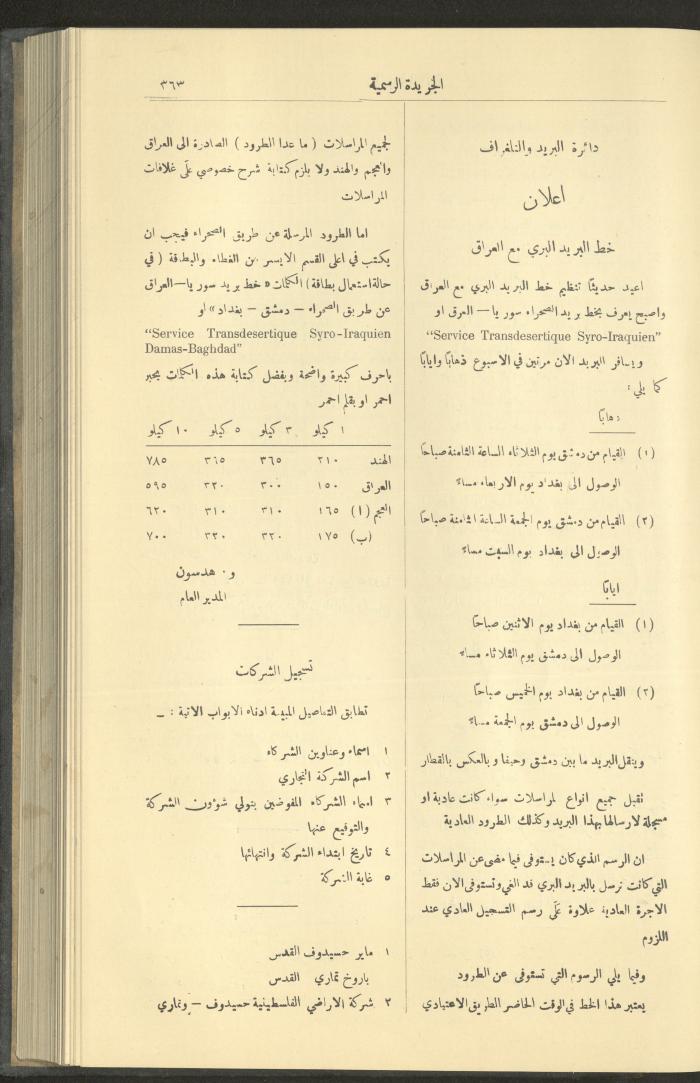 الجريدة الرسمية
٣٦٣
دائرة البريد والتلغراف
اعلان
خط البريد البري مع العراق
اعيد حديثًا تنظيم خط البريد البري مع العراق
واصبح يعرف بخط بريد الصحراء سوريا — العرق او
“Service Transdesertique Syro-Iraquien”
ويسافر البريد الان مرتين في الاسبوع ذهابًا وايابًا
كما يلي :
ذهابًا
(١) القيام من دمشق يوم الثلاثاء الساعة الثامنة صباحًا
الوصول الى بغداد يوم الاربعاء مساءً
(٢) القيام من دمشق يوم الجمعة الساعة الثامنة صباحًا
الوصول الى بغداد يوم السبت مساءً
ايابًا
(١) القيام من بغداد يوم الاثنين صباحًا
الوصول الى دمشق يوم الثلاثاء مساءً
(٢) القيام من بغداد يوم الخميس صباحًا
الوصول الى دمشق يوم الجمعة مساءً
وينقل البريد ما بين دمشق وحيفا وبالعكس بالقطار
تقبل جميع انواع لمراسلات سواء كانت عادية او
مسجلة لارسالها بهذا البريد وكذلك الطرود العادية
ان الرسم الذي كان يستوفى فيما مضى عن المراسلات
التي كانت ترسل بالبريد البري قد الغي وتستوفى الان فقط
الاجرة العادية علاوة على رسم التسجيل العادي عند
اللزوم
وفيما يلي الرسوم التي تستوفى عن الطرود
يعتبر هذا الخط في الوقت الحاضر الطريق الاعتيادي
لجميع المراسلات ( ما عدا الطرود ) الصادرة الى العراق
والعجم والهند ولا يلزم كتابة شرح خصوصي على غلافات
المراسلات
اما الطرود المرسلة عن طريق الصحراء فيجب ان
يكتب في اعلى القسم الايسر من الغطاء والبطاقة ( في
حالة استعمال بطاقة ) الكلمات « خط بريد سوريا — العراق
عن طريق الصحراء — دمشق — بغداد » او
“Service Transdesertique Syro-Iraquien
Damas-Baghdad”
باحرف كبيرة واضحة ويفضل كتابة هذه الكلمات بحبر
احمر او بقلم احمر
١ كيلو ٣ كيلو ٥ كيلو ١٠ كيلو
الهند ٢١٠ ٣٦٥ ٣٦٥ ٧٨٥
العراق ١٥٠ ٣٠٠ ٣٢٠ ٥٩٥
العجم (ا) ١٦٥ ٣١٠ ٣١٠ ٦٢٠
(ب) ١٧٥ ٣٢٠ ٣٢٠ ٧٠٠
و . هدسون
المدير العام
تسجيل الشركات
تطابق التفاصيل المبينة ادناه الابواب الاتية : —
١ اسماء وعناوين الشركاء
٢ اسم الشركة التجاري
٣ اسماء الشركاء المفوضين بتولي شؤون الشركة
والتوقيع عنها
٤ تاريخ ابتداء الشركة وانتهائها
٥ غاية الشركة
١ ماير حسيدوف القدس
باروخ تماري القدس
٢ شركة الاراضي الفلسطينية حسيدوف — وتماري